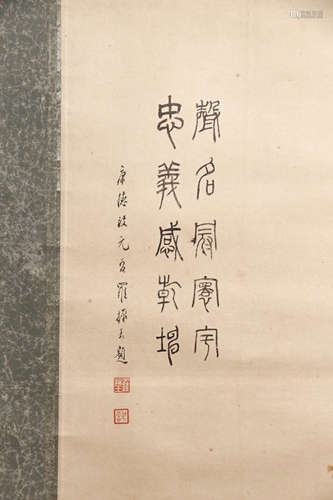 聲名寰宇
忠義感乾坤
康德改元羅振玉題